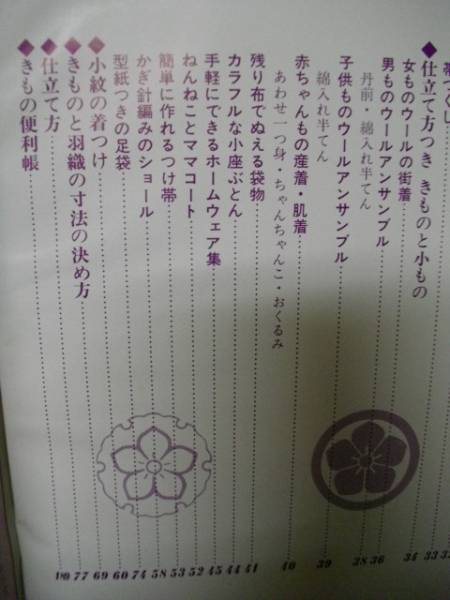 帯づくし
◆仕立て方つき きものと小もの 33
女ものウールの街着 34
男ものウールアンサンブル 36
丹前・綿入れ半てん 38
子供ものウールアンサンブル
綿入れ半てん 39
赤ちゃんもの産着・肌着
あわせ一つ身・ちゃんちゃんこ・おくるみ 40
残り布でぬえる袋物 41
カラフルな小座ぶとん 44
手軽にできるホームウェア集 45
ねんねことママコート 52
簡単に作れるつけ帯 53
かぎ針編みのショール 58
型紙つきの足袋 74
◆小紋の着つけ 60
◆きものと羽織の寸法の決め方 69
◆仕立て方 77
◆きもの便利帳 190